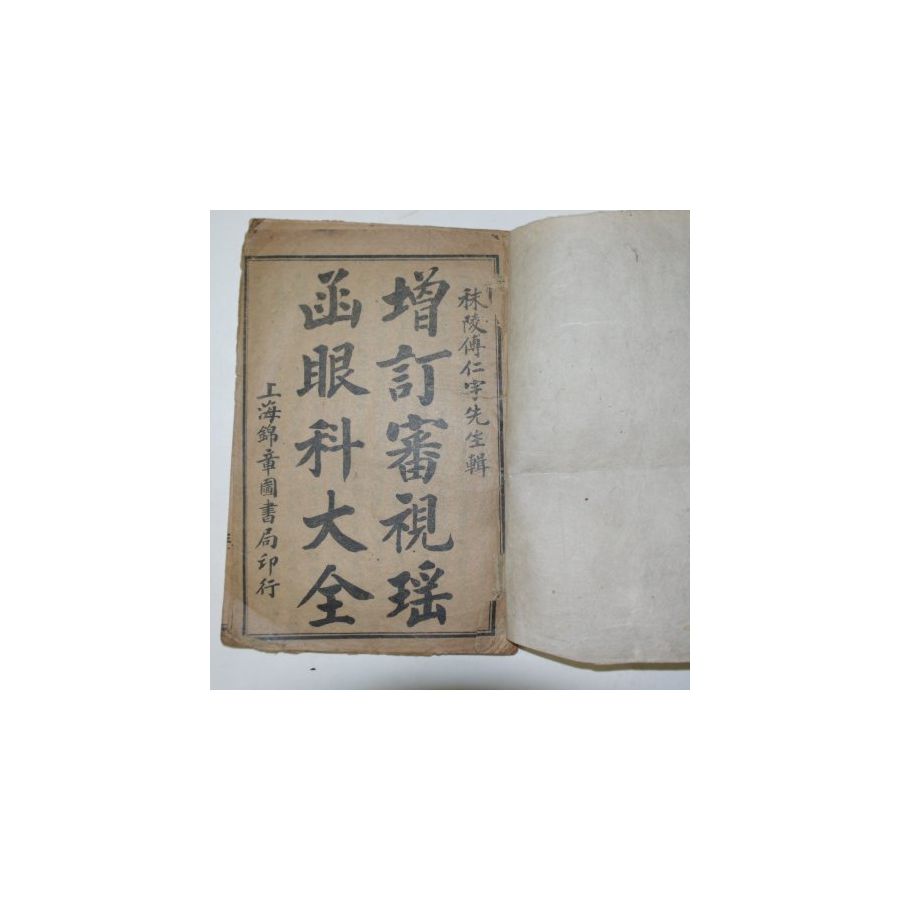 秣陵傅仁宇先生輯
增訂審視瑶
函眼科大全
上海錦章圖書局印行